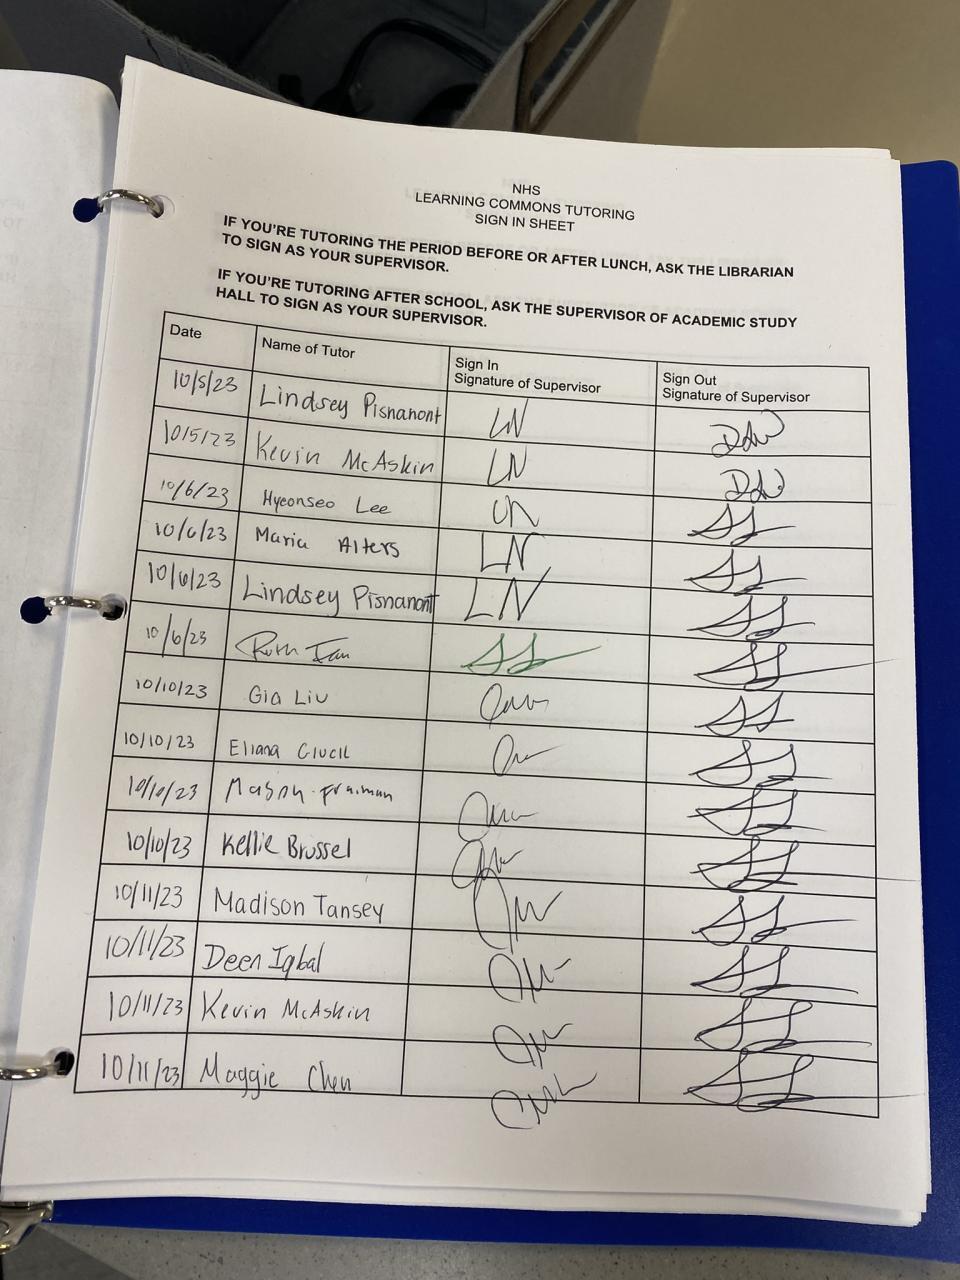 NHS
LEARNING COMMONS TUTORING
SIGN IN SHEET
IF YOU'RE TUTORING THE PERIOD BEFORE OR AFTER LUNCH, ASK THE LIBRARIAN
TO SIGN AS YOUR SUPERVISOR.
IF YOU'RE TUTORING AFTER SCHOOL, ASK THE SUPERVISOR OF ACADEMIC STUDY
HALL TO SIGN AS YOUR SUPERVISOR.
Date Name of Tutor Sign In Signature of Supervisor Sign Out Signature of Supervisor
10/5/23 Lindsey Pisnanont LN
10/5/23 Kevin McAskin LN
10/6/23 Hyeonseo Lee
10/6/23 Maria Alters LN
10/6/23 Lindsey Pisnanont LN
10/6/23 Ruth
10/10/23 Gia Liu
10/10/23 Eliana
10/10/23
10/10/23 Kellie Brussel
10/11/23 Madison Tansey
10/11/23 Deen Iqbal
10/11/23 Kevin McAskin
10/11/23 Maggie Chen